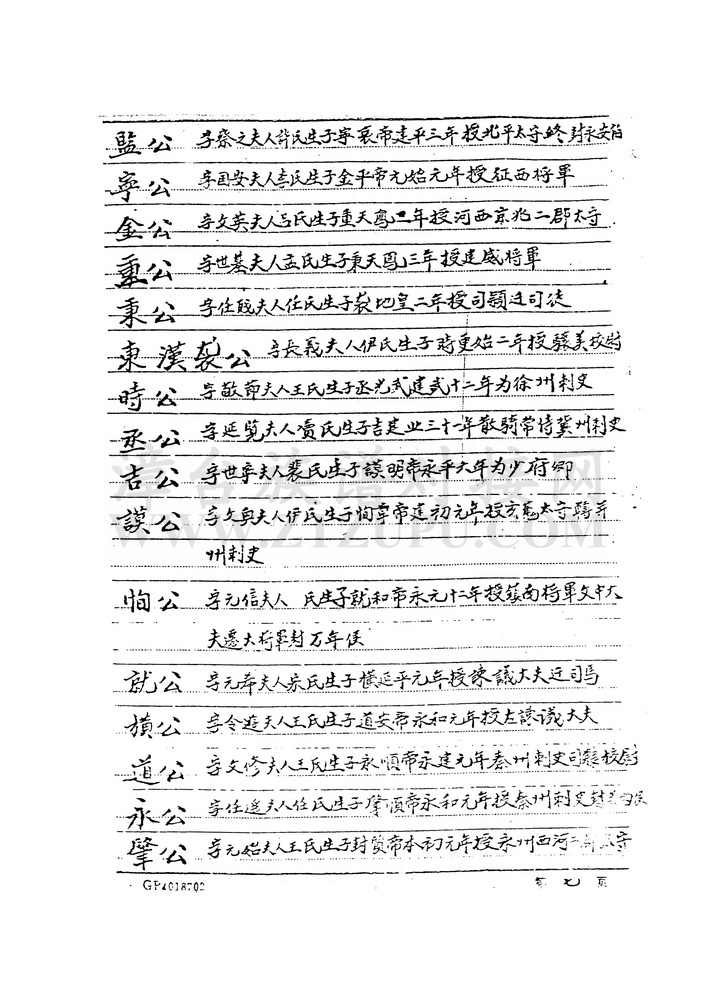 監公 字察之夫人許氏生子寧哀帝建平三年授北平太守終封永安伯
寧公 字国安夫人李氏生子金平帝元始元年授征西将軍
金公 字文英夫人吕氏生子重天鳳二年授河西京兆二郡太守
重公 字世基夫人孟氏生子秉天鳳三年授建威将軍
秉公 字任賤夫人任氏生子袭地皇二年授司穎迁司徒
東漢袭公 字長義夫人伊氏生子時更始二年授驍美校尉
時公 字敬節夫人王氏生子丞光武建武十二年为徐州刺史
丞公 字延览夫人賈氏生子吉建业三十一年散騎常侍冀州刺史
吉公 字世寧夫人裴氏生子謨明帝永平六年为少府卿
謨公 字文典夫人伊氏生子恂章帝建初元年授玄菟太守轉并
州刺史
恂公 字元信夫人 氏生子就和帝永元十二年授鎮南将軍文中大
夫遷大将軍封万年侯
就公 字元寿夫人宋氏生子横延平元年授諫議大夫迁司馬
横公 字令遊夫人王氏生子道安帝永和元年授左諫議大夫
道公 字文修夫人王氏生子永順帝永建元年秦州刺史司隸校尉
永公 字任遥夫人任氏生子肇順帝永和元年授秦州刺史封
肇公 字元始夫人王氏生子封質帝本初元年授永州西河二郡太守
GP4018702 第七页
漳台族谱对接网
WWW.ZTZUPU.COM